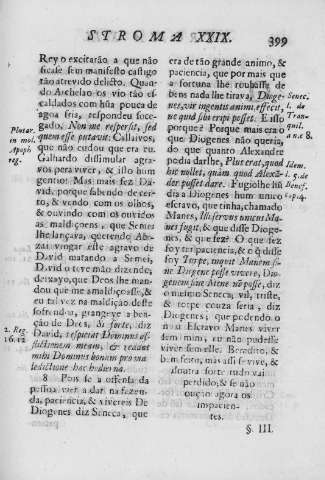 STROMA XXIX.
399
Rey o excitarão a que não
ficase sem manifesto castigo
tão atrevido delicto. Quando
Archelao os vio tão
caldados com hũa pouca de
agoa fria, respondeu
gado. Non me respersit, sed
quem esse putavit. Callaivos,
que não cudou que era eu.
Galhardo dissimular agravos
pera viver, & isso hum
gentio! Mas mais fez David,
porque sabendo de certo,
& vendo com os olhos,
& ouvindo com os ouvidos
as maldiçoens, que Semei
lhe lançava, querendo
vingar este agravo de
David matando a Semei,
David o teve mão dizendo,
deixayo, que Deos lhe mandou
que me amaldiçoasse, &
eu tal vez na maldição deste
sofrendoa, grangeye a benção
de Deos. Si forte, diz
David, respiciat Dominus afflictionem
meam, & reddat
mihi Dominus bonum pro maledictione
hac hodierna.
8 Pois se a ofensa da
pessoa vier a dar na fazenda,
paciencia, & vivereis De
Diogenes diz Seneca, que
Plutar.
in mor.
Apoph
reg.
2. Reg.
16. 12
era de tão grande animo, &
paciencia, que por mais que
a fortuna lhe roubasse de
bens nada lhe tirava, Diogenes,
vir ingentis animi, effecit,
ne quid sibi eripi posset. E isso
porque? Porque mais era o
que Diogenes não queria,
do que quanto Alexandre
podia darlhe, Plus erat, quod
hic nollet, quàm quod Alexander
posset dare. Fugiolhe hũ
dia a Diogenes hum unico
escravo, que tinha, chamado
Manes, Illi servus unicus Manes
fugit, & que disse Diogenes,
& que fez? O que fez
foy ter paciencia, & o q̃ disse
foy Turpe, inquit Manem sine
Diogene posse vivere, Diogenem
sine Mane nõ posse, diz
o mesmo Seneca; vil, triste,
& torpe couza seria, diz
Diogenes; que podendo o
meu Escravo Manes viver
sem mim, eu não pudesse
viver sem elle. Bemdito, &
bem feito, mas assi se vive, &
doutra sorte tudo vai
perdido, & se não
oução agora os
impacientes.
Senec.
l. de
Tranquil.
an. c 8.
Idem.
l. 5. de
Benef.
cap. 4.
§. III.